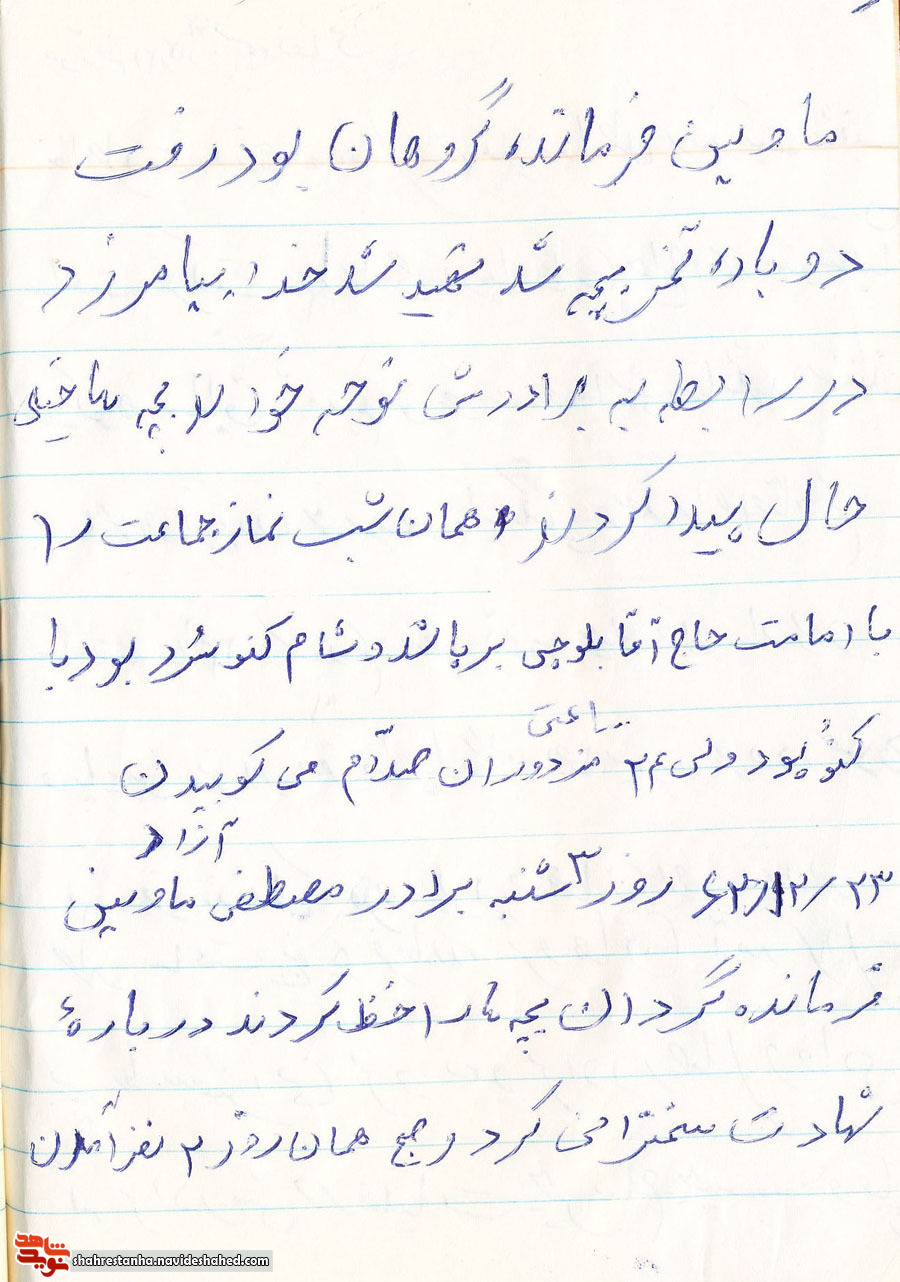 ما وبین فرمانده گروهان بود رفت
دوباره شد شهید شد خدا بیامرزد
در رابطه به برادرش نوحه خواند بچه ها خیلی
حال پیدا کردند همان شب نماز جماعت را
با امامت حاج آقا بلوچی برپا شد و شام کنو سرد بود با
کنو بود ولی ۲۴ ساعتی مزدوران صدّام می کوبیدن
۶۳/۱۲/۲۳ روز ۳ شنبه برادر مصطفی ماوبین آزاد
فرمانده گردان بچه ها را کردند درباره ء
شهادت سخنرامی کرد و صبح همان روز ۲ نفر آمدن
شاهد نوید
shahrestanha.navideshahed.com